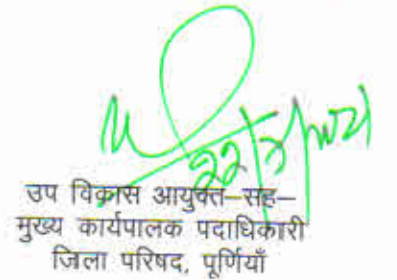 उप विकास आयुक्त-सह-
मुख्य कार्यपालक पदाधिकारी
जिला परिषद, पूर्णियाँ